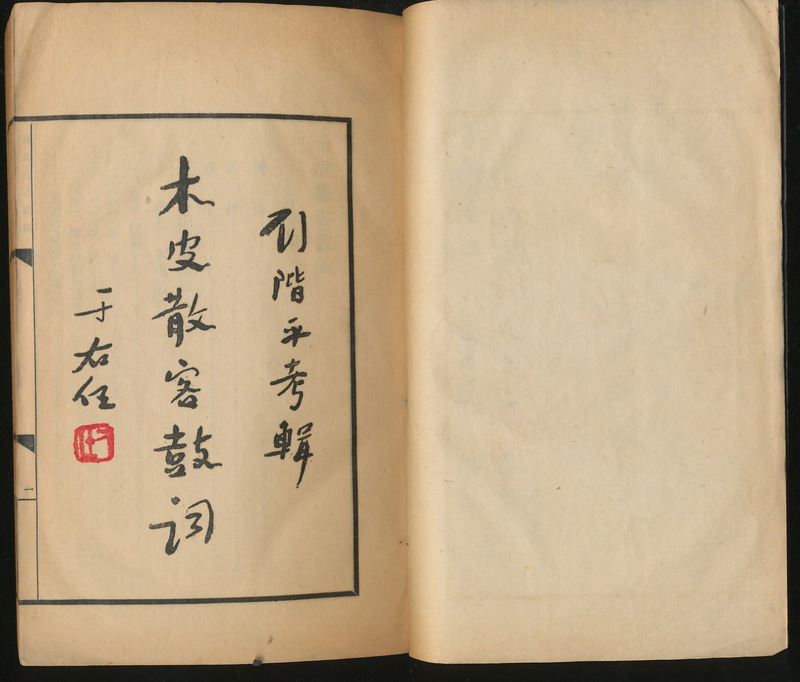 刘階平考輯
木皮散客鼓词
于右任
一